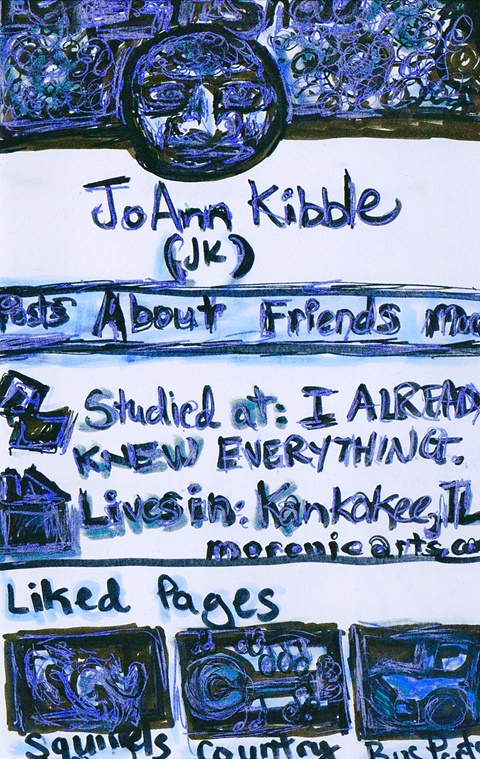 JoAnn Kibble
(JK)
Posts About Friends Mo
Studied at: I ALREADY
KNEW EVERYTHING.
Lives in: Kankakee, IL
moronicarts.co
Liked Pages
Squirrels Country Bus Parts